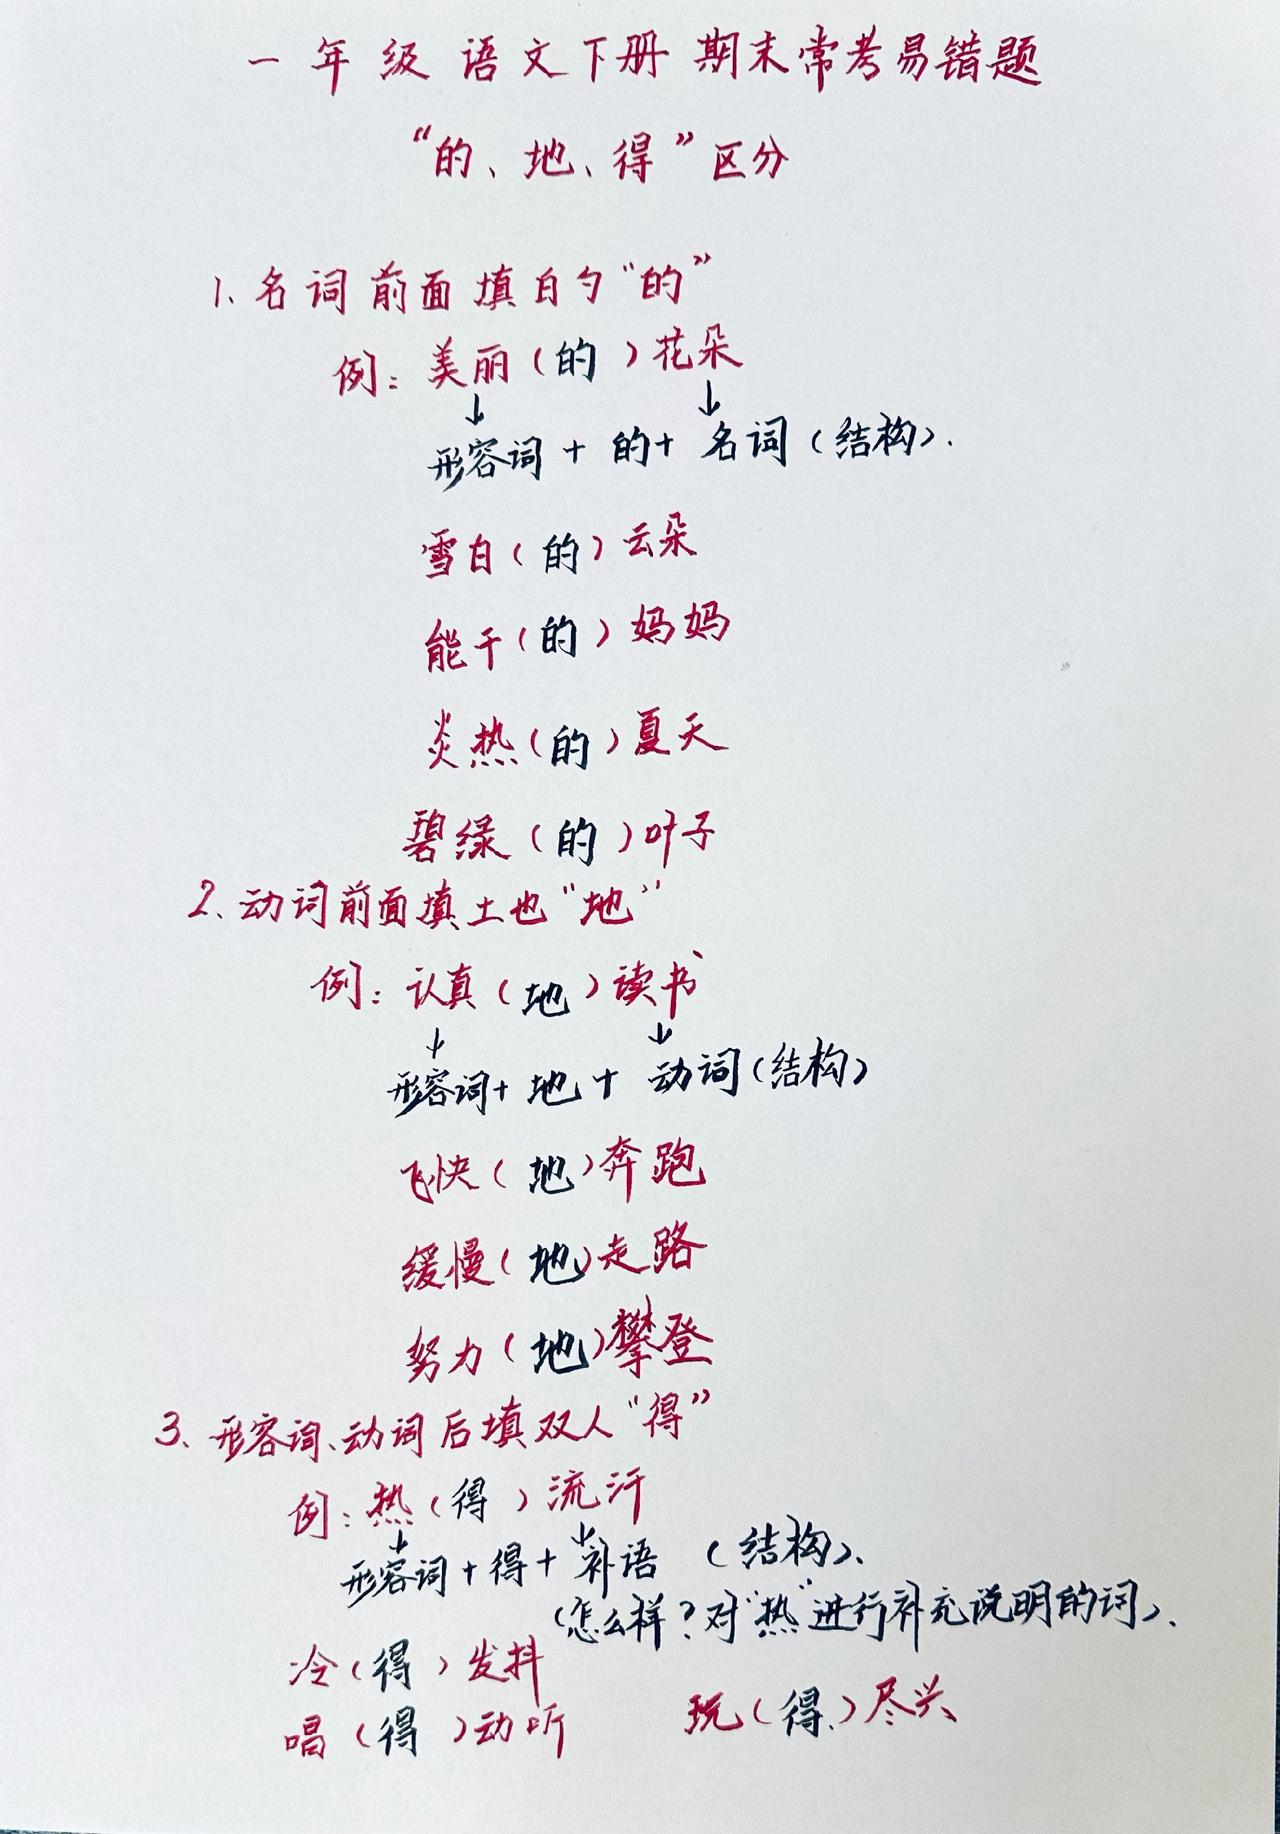 一年级语文下册期末常考易错题
“的、地、得”区分
1、名词前面填白勺“的”
例：美丽（的）花朵
↓ ↓
形容词＋的＋名词（结构）.
雪白（的）云朵
能干（的）妈妈
炎热（的）夏天
碧绿（的）叶子
2、动词前面填土也“地”
例：认真（地）读书
↓ ↓
形容词＋地＋动词（结构）
飞快（地）奔跑
缓慢（地）走路
努力（地）攀登
3、形容词、动词后填双人“得”
例：热（得）流汗
↓ ↓
形容词＋得＋补语（结构）、
（怎么样？对“热”进行补充说明的词）.
冷（得）发抖
唱（得）动听 玩（得）尽兴